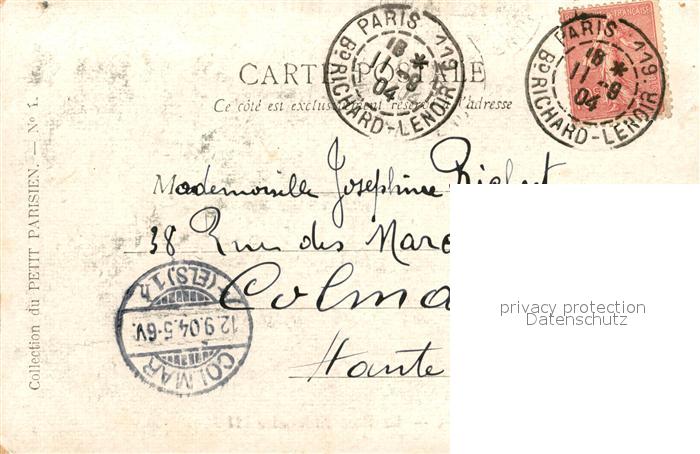 PARIS 119
18 *
11 - 9
04
Bd RICHARD-LENOIR
PARIS 119
18 *
11 - 9
04
Bd RICHARD-LENOIR
CARTE POSTALE
Ce côté est exclusivement réservé à l'adresse
Mademoiselle Josephine
38 Rue des Marc
Colma
Haute
COLMAR
12.9.04.5-6V.
(ELS) 1 h
Collection du PETIT PARISIEN. — No 1.
privacy protection
Datenschutz